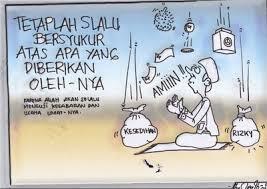 TETAPLAH SLALU
BERSYUKUR
ATAS APA YANG
DIBERIKAN
OLEH-NYA
KARENA ALLAH AKAN SELALU
MENGUJI KESABARAN DAN
USAHA UMAT-NYA.
AMIIN!!
KESEDIHAN
RIZKY